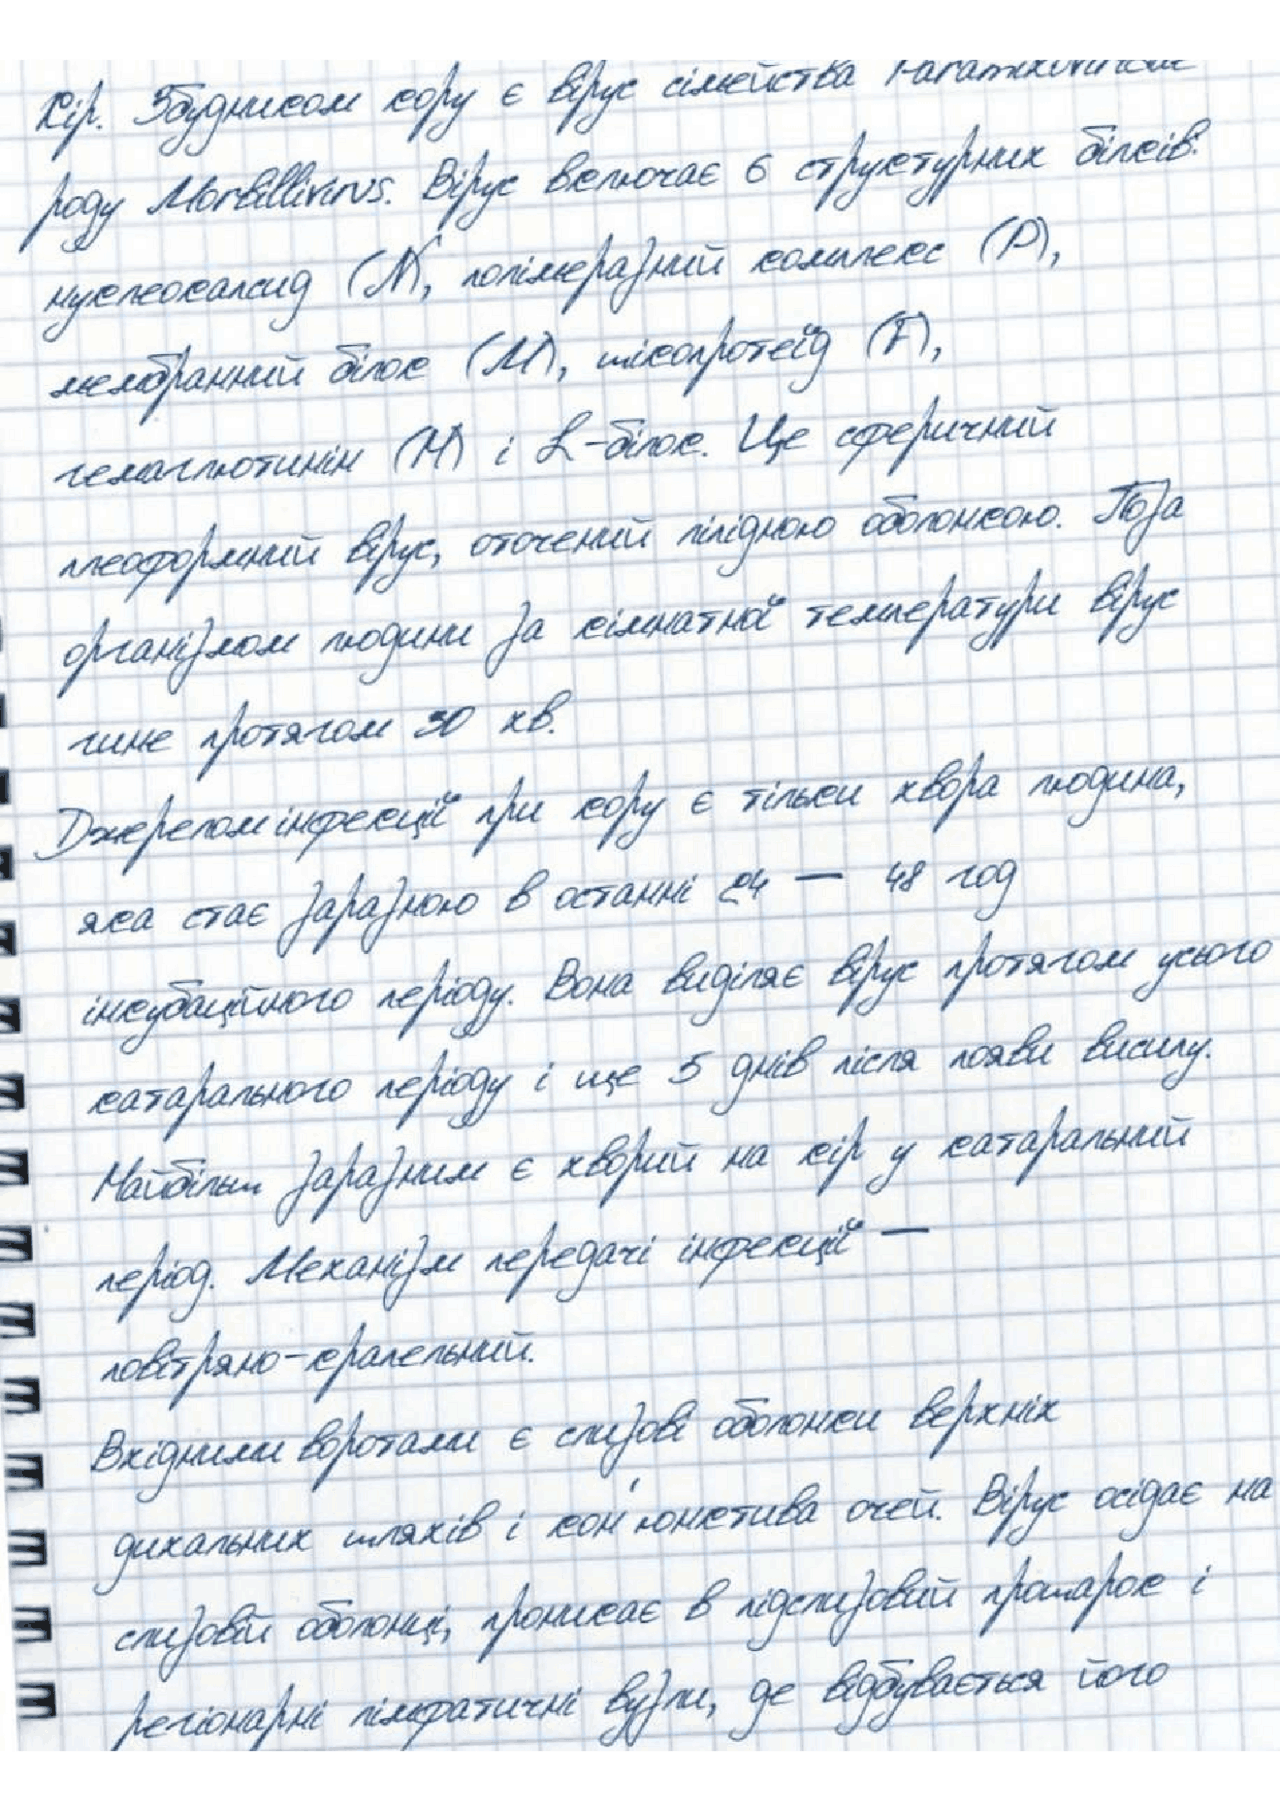 Кір. Збудником кору є вірус сімейства
роду Morbillivirus. Вірус включає 6 структурних білків:
нуклеокапсид (N), полімеразний комплекс (P),
мембранний білок (M), глікопротеїд (F),
гемаглютинін (H) і L-білок. Це сферичний
плеоформний вірус, оточений ліпідною оболонкою. Поза
організмом людини за кімнатної температури вірус
гине протягом 30 хв.
Джерелом інфекції при кору є тільки хвора людина,
яка стає заразною в останні 24 — 48 год
інкубаційного періоду. Вона виділяє вірус протягом усього
катарального періоду і ще 5 днів після появи висипу.
Найбільш заразним є хворий на кір у катаральний
період. Механізм передачі інфекції —
повітряно-крапельний.
Вхідними воротами є слизові оболонки верхніх
дихальних шляхів і кон'юнктива очей. Вірус осідає на
слизовій оболонці, проникає в підслизовий прошарок і
регіонарні лімфатичні вузли, де відбувається його